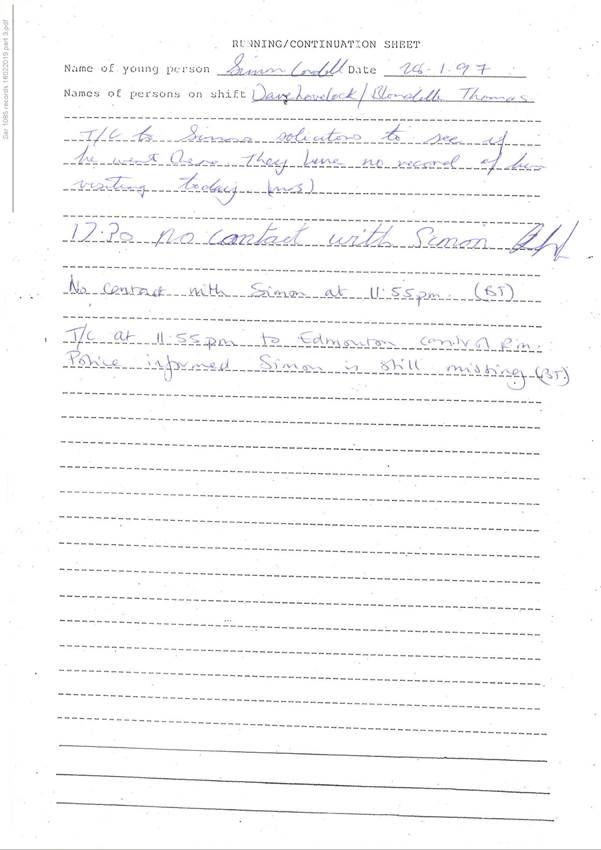 Sar 1085 records 16022019 part 3.pdf
RUNNING/CONTINUATION SHEET
Name of young person Simon Cordell Date 28.1.97
Names of persons on shift Dave Lovelock / Blondelle Thomas
T/C to Simons solicitors to see if
he went there. They have no record of him
visiting today
17.30 no contact with Simon
No contact with Simon at 11.55pm. (BT)
T/C at 11.55pm to Edmonton control Rm.
Police informed Simon is still missing (BT.)